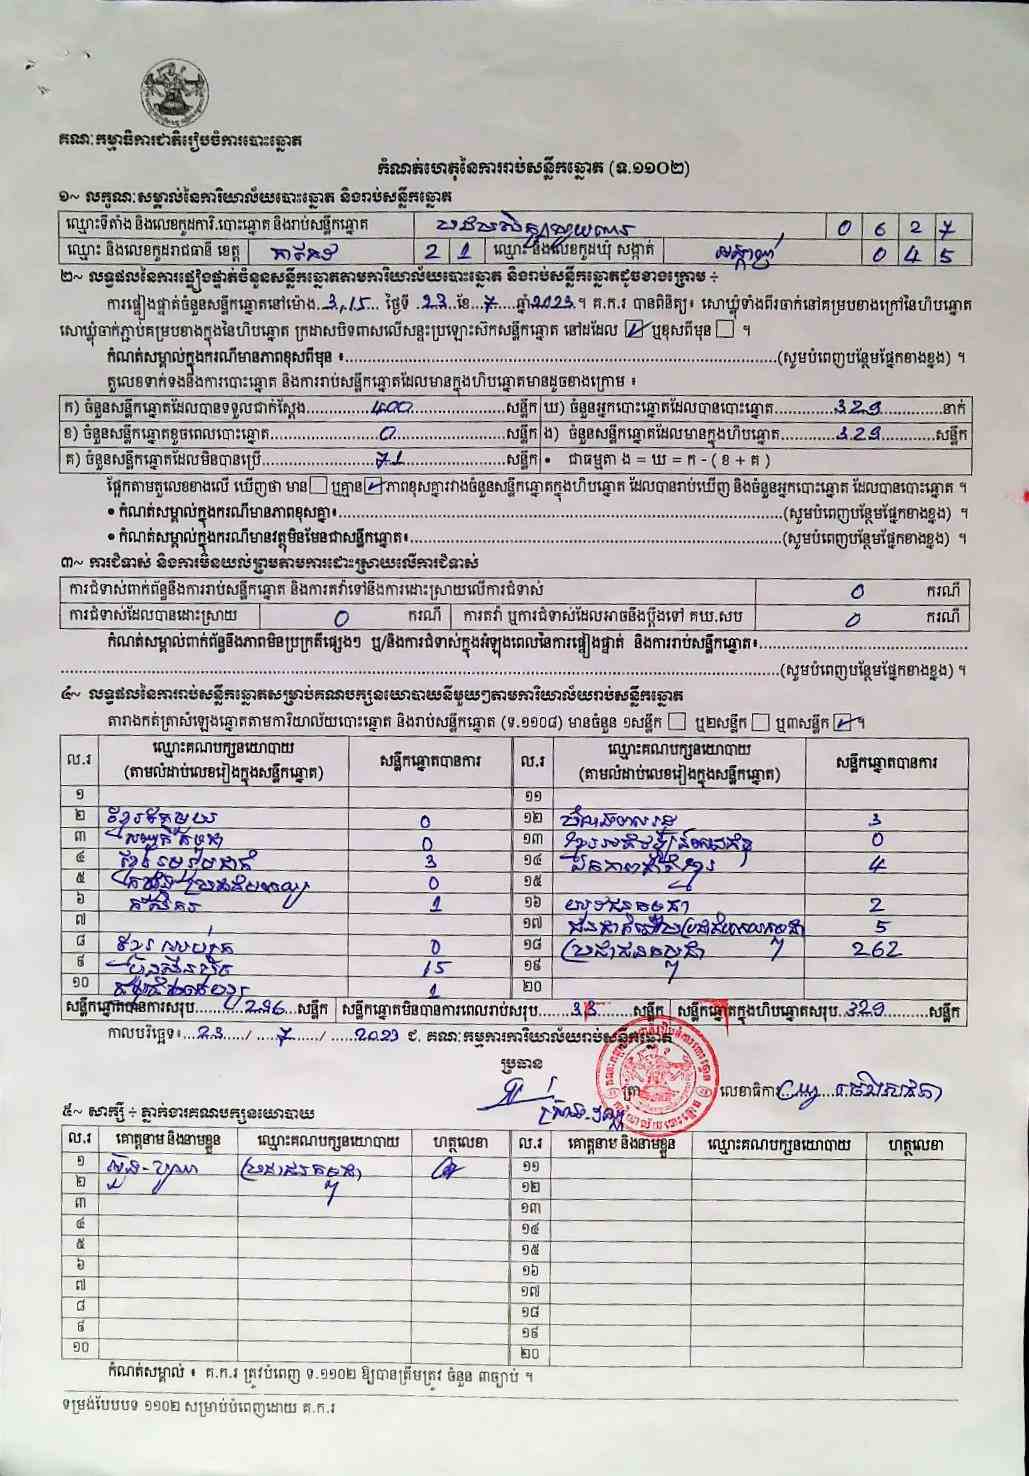 គណៈកម្មាធិការជាតិរៀបចំការបោះឆ្នោត
កំណត់ហេតុនៃការរាប់សន្លឹកឆ្នោត (ទ.១១០២)
១~ លក្ខណៈសម្គាល់នៃការិយាល័យបោះឆ្នោត និងរាប់សន្លឹកឆ្នោត
ឈ្មោះទីតាំង និងលេខកូដការិ.បោះឆ្នោត និងរាប់សន្លឹកឆ្នោត 0 6 2 7
ឈ្មោះ និងលេខកូដរាជធានី ខេត្ត តាកែវ 2 1 ឈ្មោះ និងលេខកូដឃុំ សង្កាត់ 0 4 5
២~ លទ្ធផលនៃការផ្ទៀងផ្ទាត់ចំនួនសន្លឹកឆ្នោតតាមការិយាល័យបោះឆ្នោត និងរាប់សន្លឹកឆ្នោតដូចខាងក្រោម ÷
ការផ្ទៀងផ្ទាត់ចំនួនសន្លឹកឆ្នោតនៅម៉ោង..3,15... ថ្ងៃទី .23..ខែ..7...ឆ្នាំ2023.។ គ.ក.រ បានពិនិត្យ៖ សោឃ្លុំទាំងពីរចាក់នៅគម្របខាងក្រៅនៃហិបឆ្នោត
សោឃ្លុំចាក់ភ្ជាប់គម្របខាងក្នុងនៃហិបឆ្នោត ក្រដាសបិទពាសលើសន្ទះប្រឡោះស៊កសន្លឹកឆ្នោត នៅដដែល ☑ ឬខុសពីមុន ☐ ។
កំណត់សម្គាល់ក្នុងករណីមានភាពខុសពីមុន ៖......(សូមបំពេញបន្ថែមផ្នែកខាងខ្នង) ។
តួលេខទាក់ទងនឹងការបោះឆ្នោត និងការរាប់សន្លឹកឆ្នោតដែលមានក្នុងហិបឆ្នោតមានដូចខាងក្រោម ៖
ក) ចំនួនសន្លឹកឆ្នោតដែលបានទទួលជាក់ស្តែង......400......សន្លឹក ឃ) ចំនួនអ្នកបោះឆ្នោតដែលបានបោះឆ្នោត......329......នាក់
ខ) ចំនួនសន្លឹកឆ្នោតខូចពេលបោះឆ្នោត......0......សន្លឹក ង) ចំនួនសន្លឹកឆ្នោតដែលមានក្នុងហិបឆ្នោត......329......សន្លឹក
គ) ចំនួនសន្លឹកឆ្នោតដែលមិនបានប្រើ......71......សន្លឹក • ជាធម្មតា ង = ឃ = ក - ( ខ + គ )
ផ្អែកតាមតួលេខខាងលើ ឃើញថា មាន ☐ ឬគ្មាន ☑ ភាពខុសគ្នារវាងចំនួនសន្លឹកឆ្នោតក្នុងហិបឆ្នោត ដែលបានរាប់ឃើញ និងចំនួនអ្នកបោះឆ្នោត ដែលបានបោះឆ្នោត ។
• កំណត់សម្គាល់ក្នុងករណីមានភាពខុសគ្នា៖......(សូមបំពេញបន្ថែមផ្នែកខាងខ្នង) ។
• កំណត់សម្គាល់ក្នុងករណីមានវត្ថុមិនមែនជាសន្លឹកឆ្នោត៖......(សូមបំពេញបន្ថែមផ្នែកខាងខ្នង) ។
៣~ ការជំទាស់ និងការមិនយល់ព្រមតាមការដោះស្រាយលើការជំទាស់
ការជំទាស់ពាក់ព័ន្ធនឹងការរាប់សន្លឹកឆ្នោត និងការតវ៉ាទៅនឹងការដោះស្រាយលើការជំទាស់ 0 ករណី
ការជំទាស់ដែលបានដោះស្រាយ 0 ករណី ការតវ៉ា ឬការជំទាស់ដែលអាចនឹងប្តឹងទៅ គឃ.សប 0 ករណី
កំណត់សម្គាល់ពាក់ព័ន្ធនឹងភាពមិនប្រក្រតីផ្សេងៗ ឬ/និងការជំទាស់ក្នុងអំឡុងពេលនៃការផ្ទៀងផ្ទាត់ និងការរាប់សន្លឹកឆ្នោត៖......
......(សូមបំពេញបន្ថែមផ្នែកខាងខ្នង) ។
៤~ លទ្ធផលនៃការរាប់សន្លឹកឆ្នោតសម្រាប់គណបក្សនយោបាយនីមួយៗតាមការិយាល័យរាប់សន្លឹកឆ្នោត
តារាងកត់ត្រាសំឡេងឆ្នោតតាមការិយាល័យបោះឆ្នោត និងរាប់សន្លឹកឆ្នោត (ទ.១១០៨) មានចំនួន ១សន្លឹក ☐ ឬ២សន្លឹក ☐ ឬ៣សន្លឹក ☑ ។
ល.រ ឈ្មោះគណបក្សនយោបាយ (តាមលំដាប់លេខរៀងក្នុងសន្លឹកឆ្នោត) សន្លឹកឆ្នោតបានការ ល.រ ឈ្មោះគណបក្សនយោបាយ (តាមលំដាប់លេខរៀងក្នុងសន្លឹកឆ្នោត) សន្លឹកឆ្នោតបានការ
១ ១១
២ ខ្មែរតែមួយ 0 ១២ 3
៣ 0 ១៣ 0
៤ ខ្មែររួបរួមជាតិ 3 ១៤ 4
៥ 0 ១៥
៦ កសិករ 1 ១៦ យុវជនកម្ពុជា 2
៧ ១៧ 5
៨ 0 ១៨ ប្រជាជនកម្ពុជា 262
៩ ហ៊្វុនស៊ិនប៉ិច 15 ១៩
១០ 1 ២០
សន្លឹកឆ្នោតបានការសរុប......296...សន្លឹក សន្លឹកឆ្នោតមិនបានការពេលរាប់សរុប......33......សន្លឹក សន្លឹកឆ្នោតក្នុងហិបឆ្នោតសរុប..329......សន្លឹក
កាលបរិច្ឆេទ៖...23...../ ....7...../ .....2023 ជ. គណៈកម្មការការិយាល័យរាប់សន្លឹកឆ្នោត
ប្រធាន
ត្រា លេខាធិការ
៥~ សាក្សី ÷ ភ្នាក់ងារគណបក្សនយោបាយ
ល.រ គោត្តនាម និងនាមខ្លួន ឈ្មោះគណបក្សនយោបាយ ហត្ថលេខា ល.រ គោត្តនាម និងនាមខ្លួន ឈ្មោះគណបក្សនយោបាយ ហត្ថលេខា
១ ប្រជាជនកម្ពុជា ១១
២ ១២
៣ ១៣
៤ ១៤
៥ ១៥
៦ ១៦
៧ ១៧
៨ ១៨
៩ ១៩
១០ ២០
កំណត់សម្គាល់ ៖ គ.ក.រ ត្រូវបំពេញ ទ.១១០២ ឱ្យបានត្រឹមត្រូវ ចំនួន ៣ច្បាប់ ។
ទម្រង់បែបបទ ១១០២ សម្រាប់បំពេញដោយ គ.ក.រ